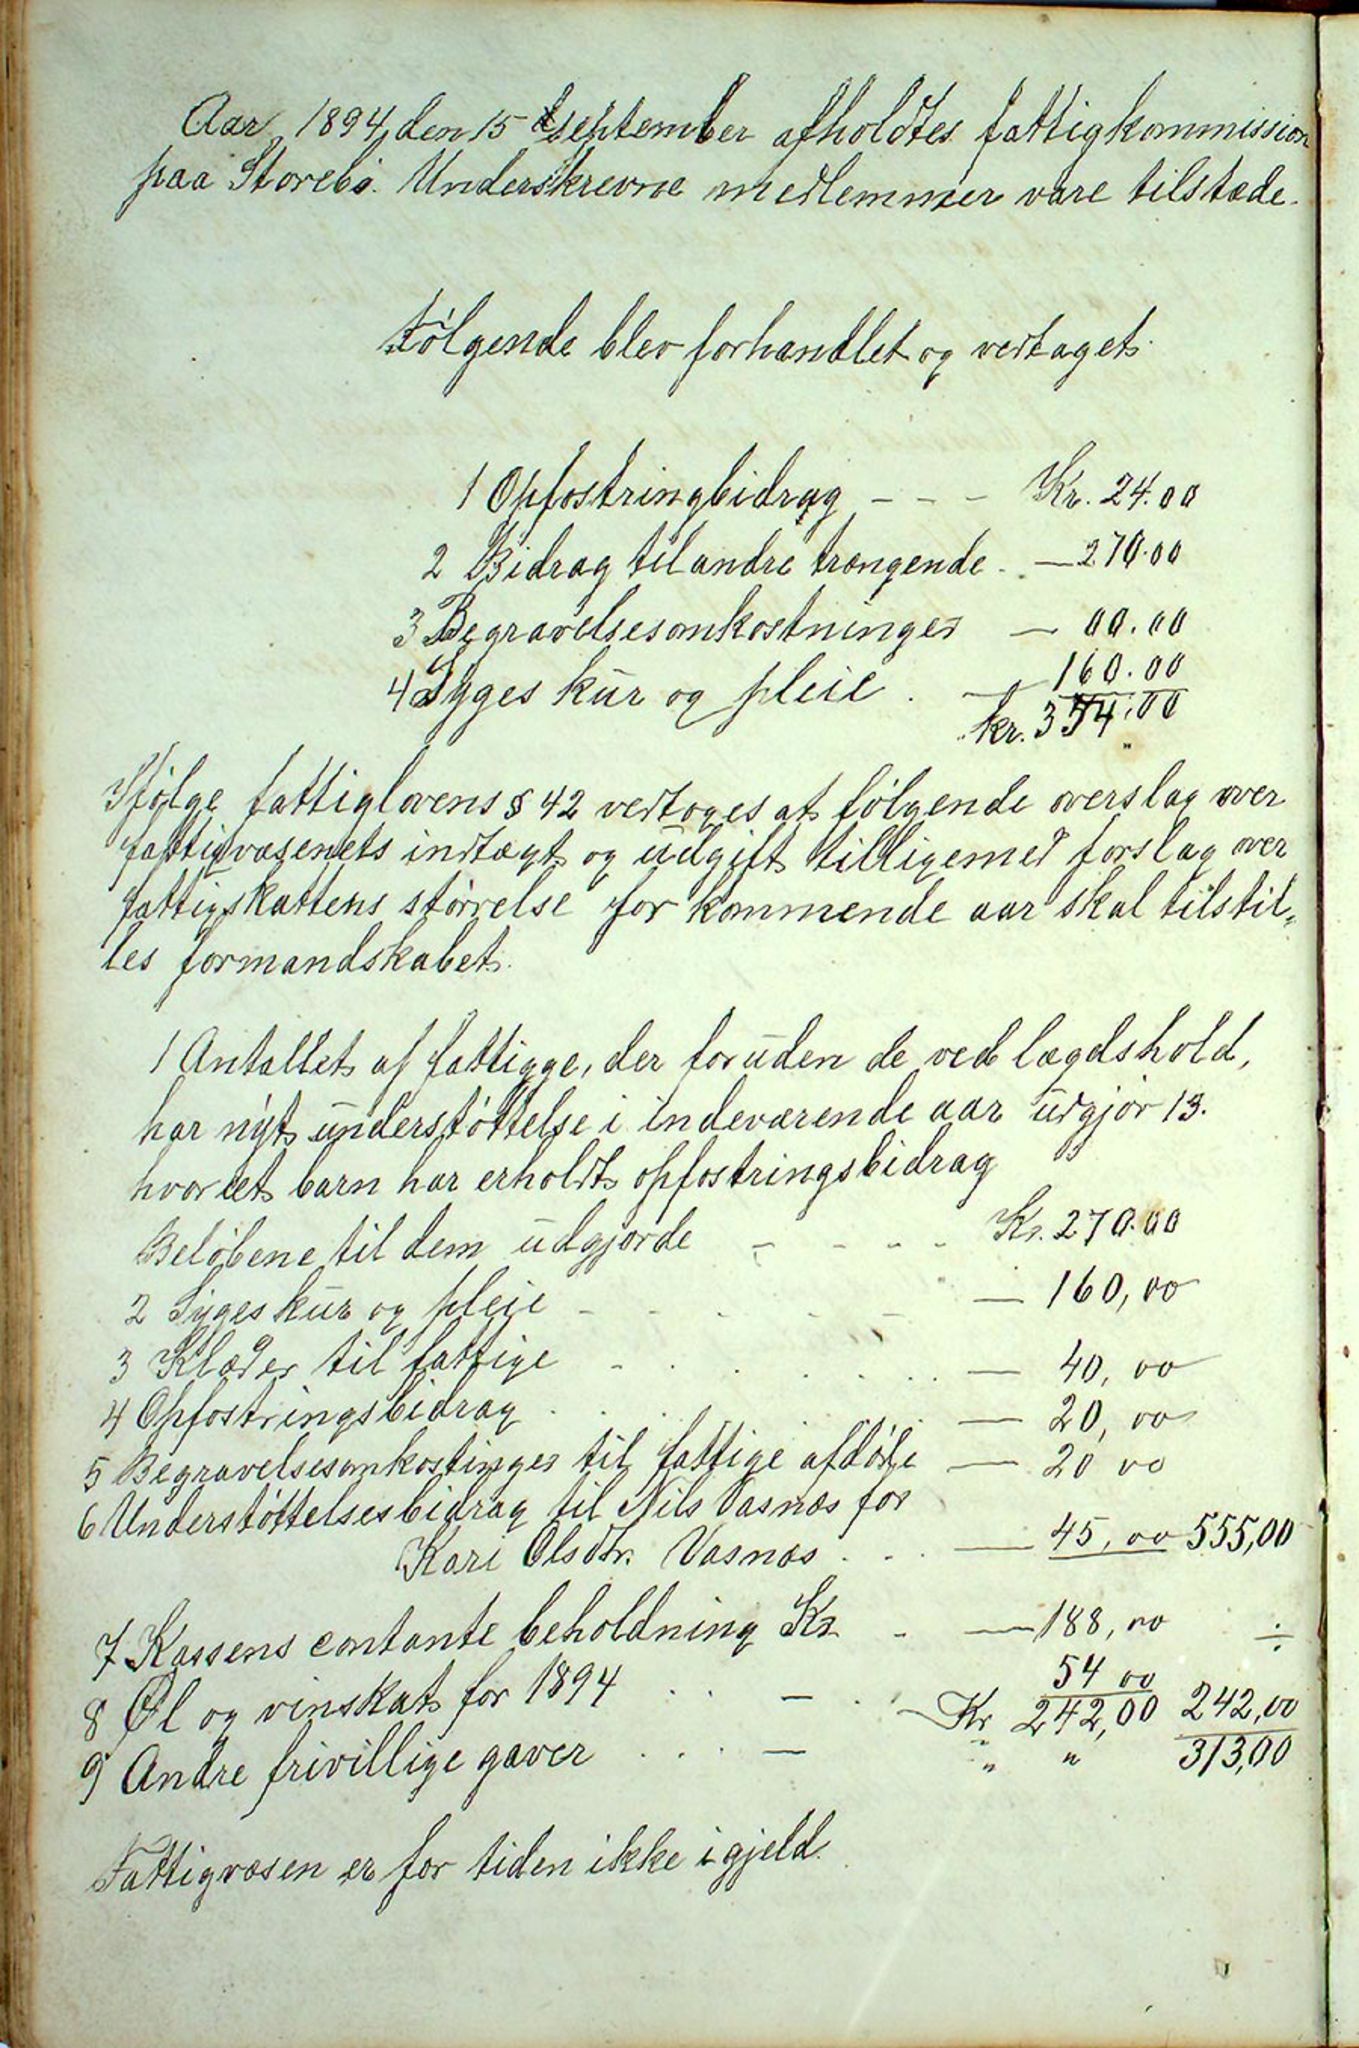 Aar 1894 den 15 september afholdtes fattigkommission
paa Storebö. Underskrevne medlemmer vare tilstæde.
Følgende blev forhandlet og vedtaget.
1 Opfostringbidrag - - - Kr. 24.00
2 Bidrag til andre trængende. — 270.00
3 Begravelsesomkostninger — 00.00
4 Syges kur og pleie . — 160.00
kr. 354.00
Ifølge fattiglovens § 42 vedtoges at følgende overslag over
fattigvæsenets indtægt og udgift tilligemed forslag over
fattigskattens størrelse for kommende aar skal tilstil„
les formandskabet.
1 Antallet af fattigge, der foruden de ved lægdshold,
har nýt understøttelse i indeværende aar udgjør 13.
hvor et barn har erholdt opfostringsbidrag
Beløbene til dem udgjorde - - - - Kr. 270.00
2 Syges kur og pleie - - . . - — 160,00
3 Klæder til fattige - . . . . . — 40,00
4 Opfostringsbidrag . . . . . — 20,00
5 Begravelsesomkostinger til fattige afdøde — 20 00
6 Understøttelsesbidrag til Nils Vasnæs for
Kari Olsdtr. Vasnæs . . . — 45,00 555,00
7 Kassens contante beholdning Kr - — 188,00 ÷
8 Øl og vinskat for 1894 . . — . 54 00
Kr 242,00 242,00
9 Andre frivillige gaver . . . — „ „ 313,00
Fattigvæsen er for tiden ikke i gjeld.